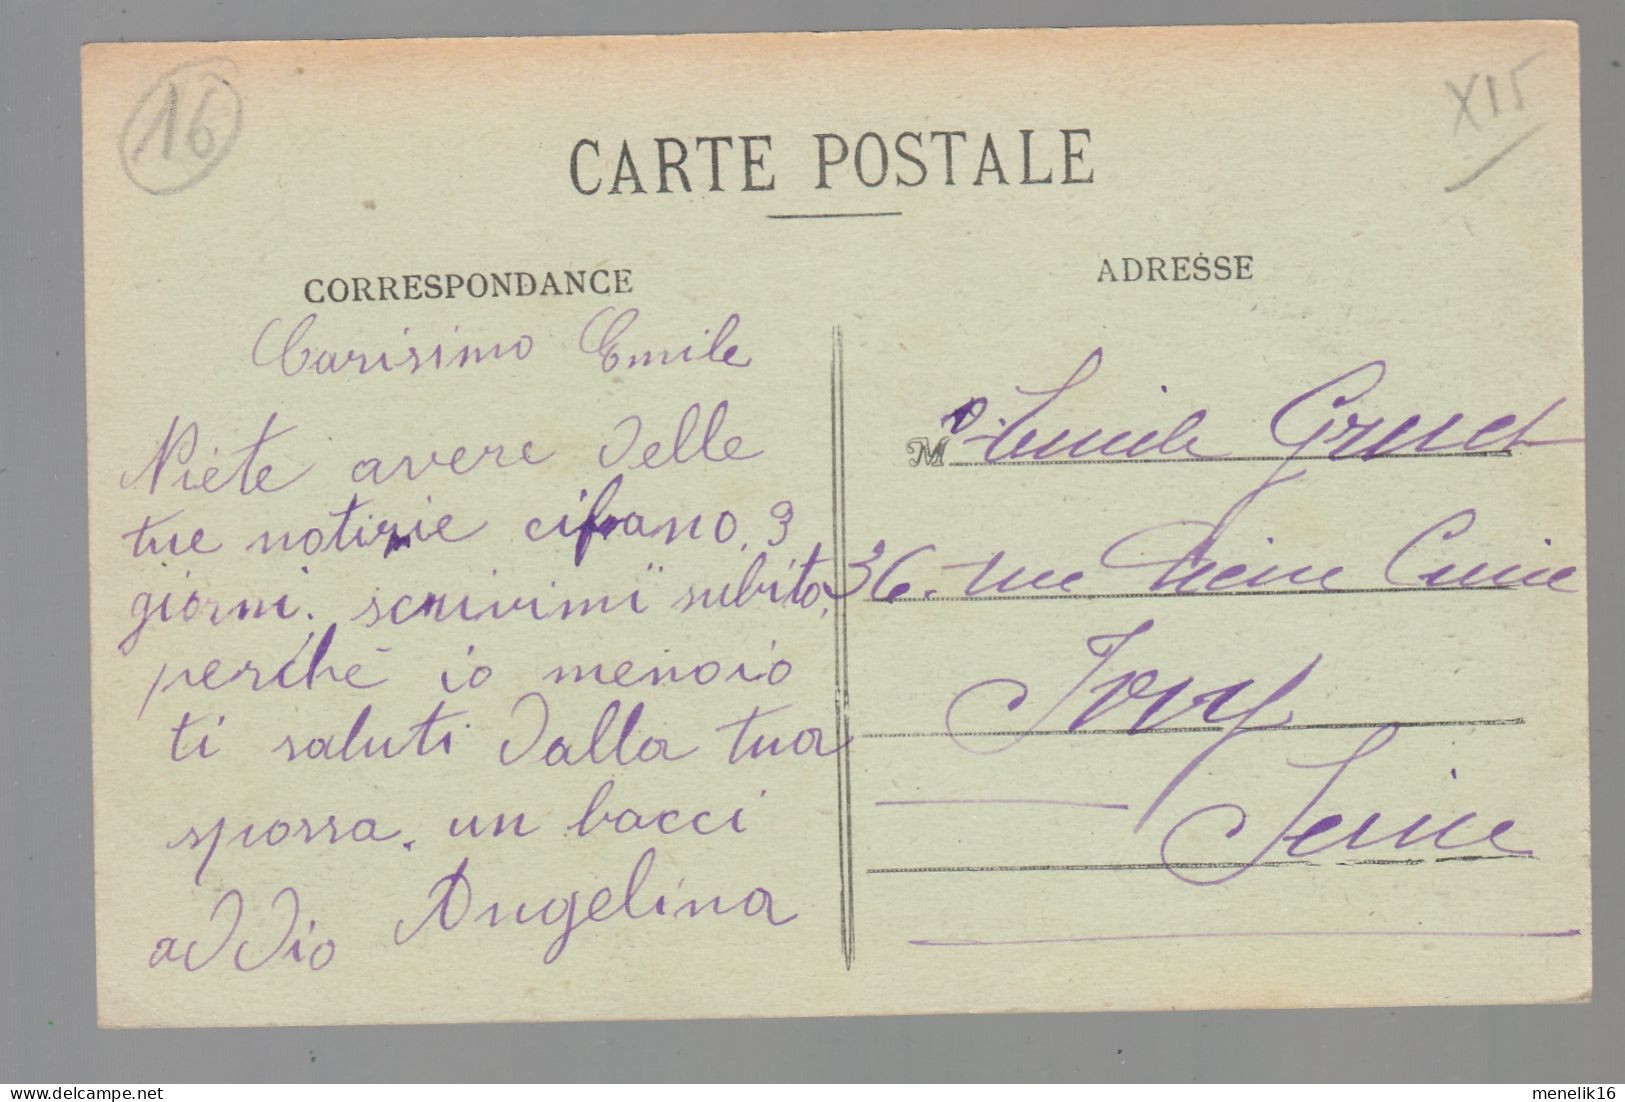 16
XII5
CARTE POSTALE
CORRESPONDANCE
ADRESSE
Carisimo Emile
Niete avere delle
tue notizie cifrano. 3
giorni. scrivimi subito,
perche io menoio
ti saluti dalla tua
spossa. un bacci
addio Angelina
M Emile Gruet
36. rue
Ivry
Seine
delcampe.net
menelik16